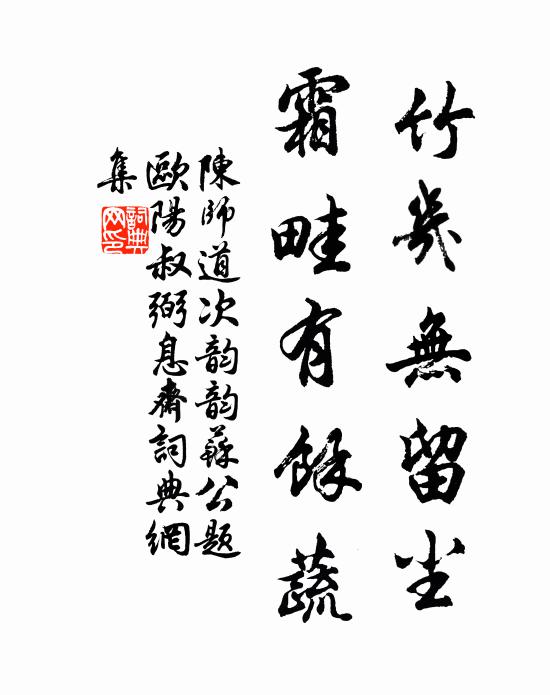 竹幾無留塵
霜畦有餘蔬
陳師道次韵韵蘇公題
歐陽叔弼息齋詞典網
集
詞典
网印